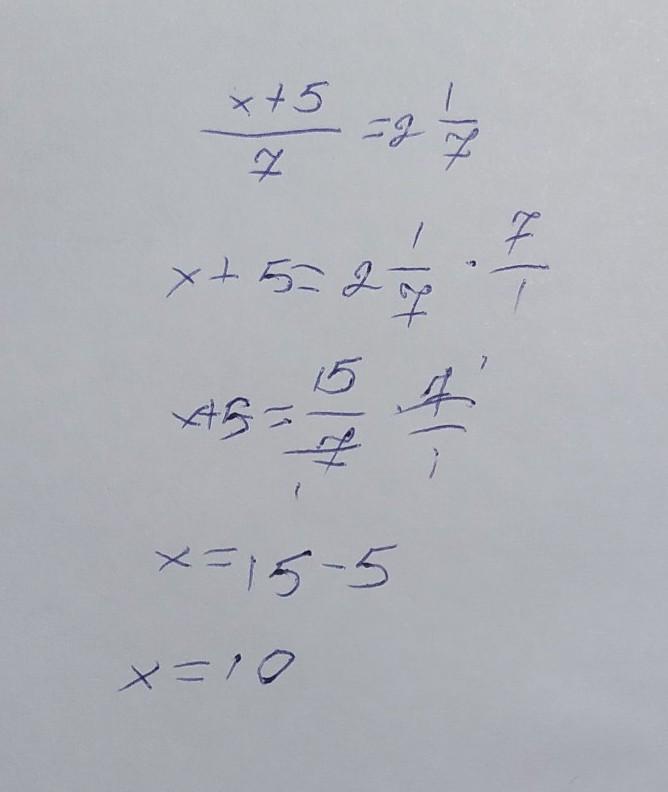 x+5/7 = 2 1/7
x+5 = 2 1/7 · 7/1
x+5 = 15/7 7/1 1 1
x=15-5
x=10